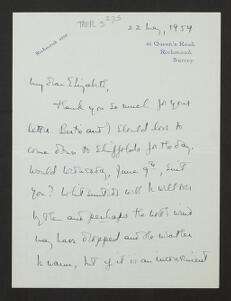 TRER 3 275
22 May, 1954
Richmond
41 Queen's Road
Richmond
Surrey
My dear Elizabeth,
Thank you so much for your
letter. and I should love to
come down to Shiffolds for the day.
Would Wednesday, June 9th, suit
you? Whitsuntide will be well over
by then and perhaps the north wind
may have dropped and the weather
be warm, but if it is an inconvenient